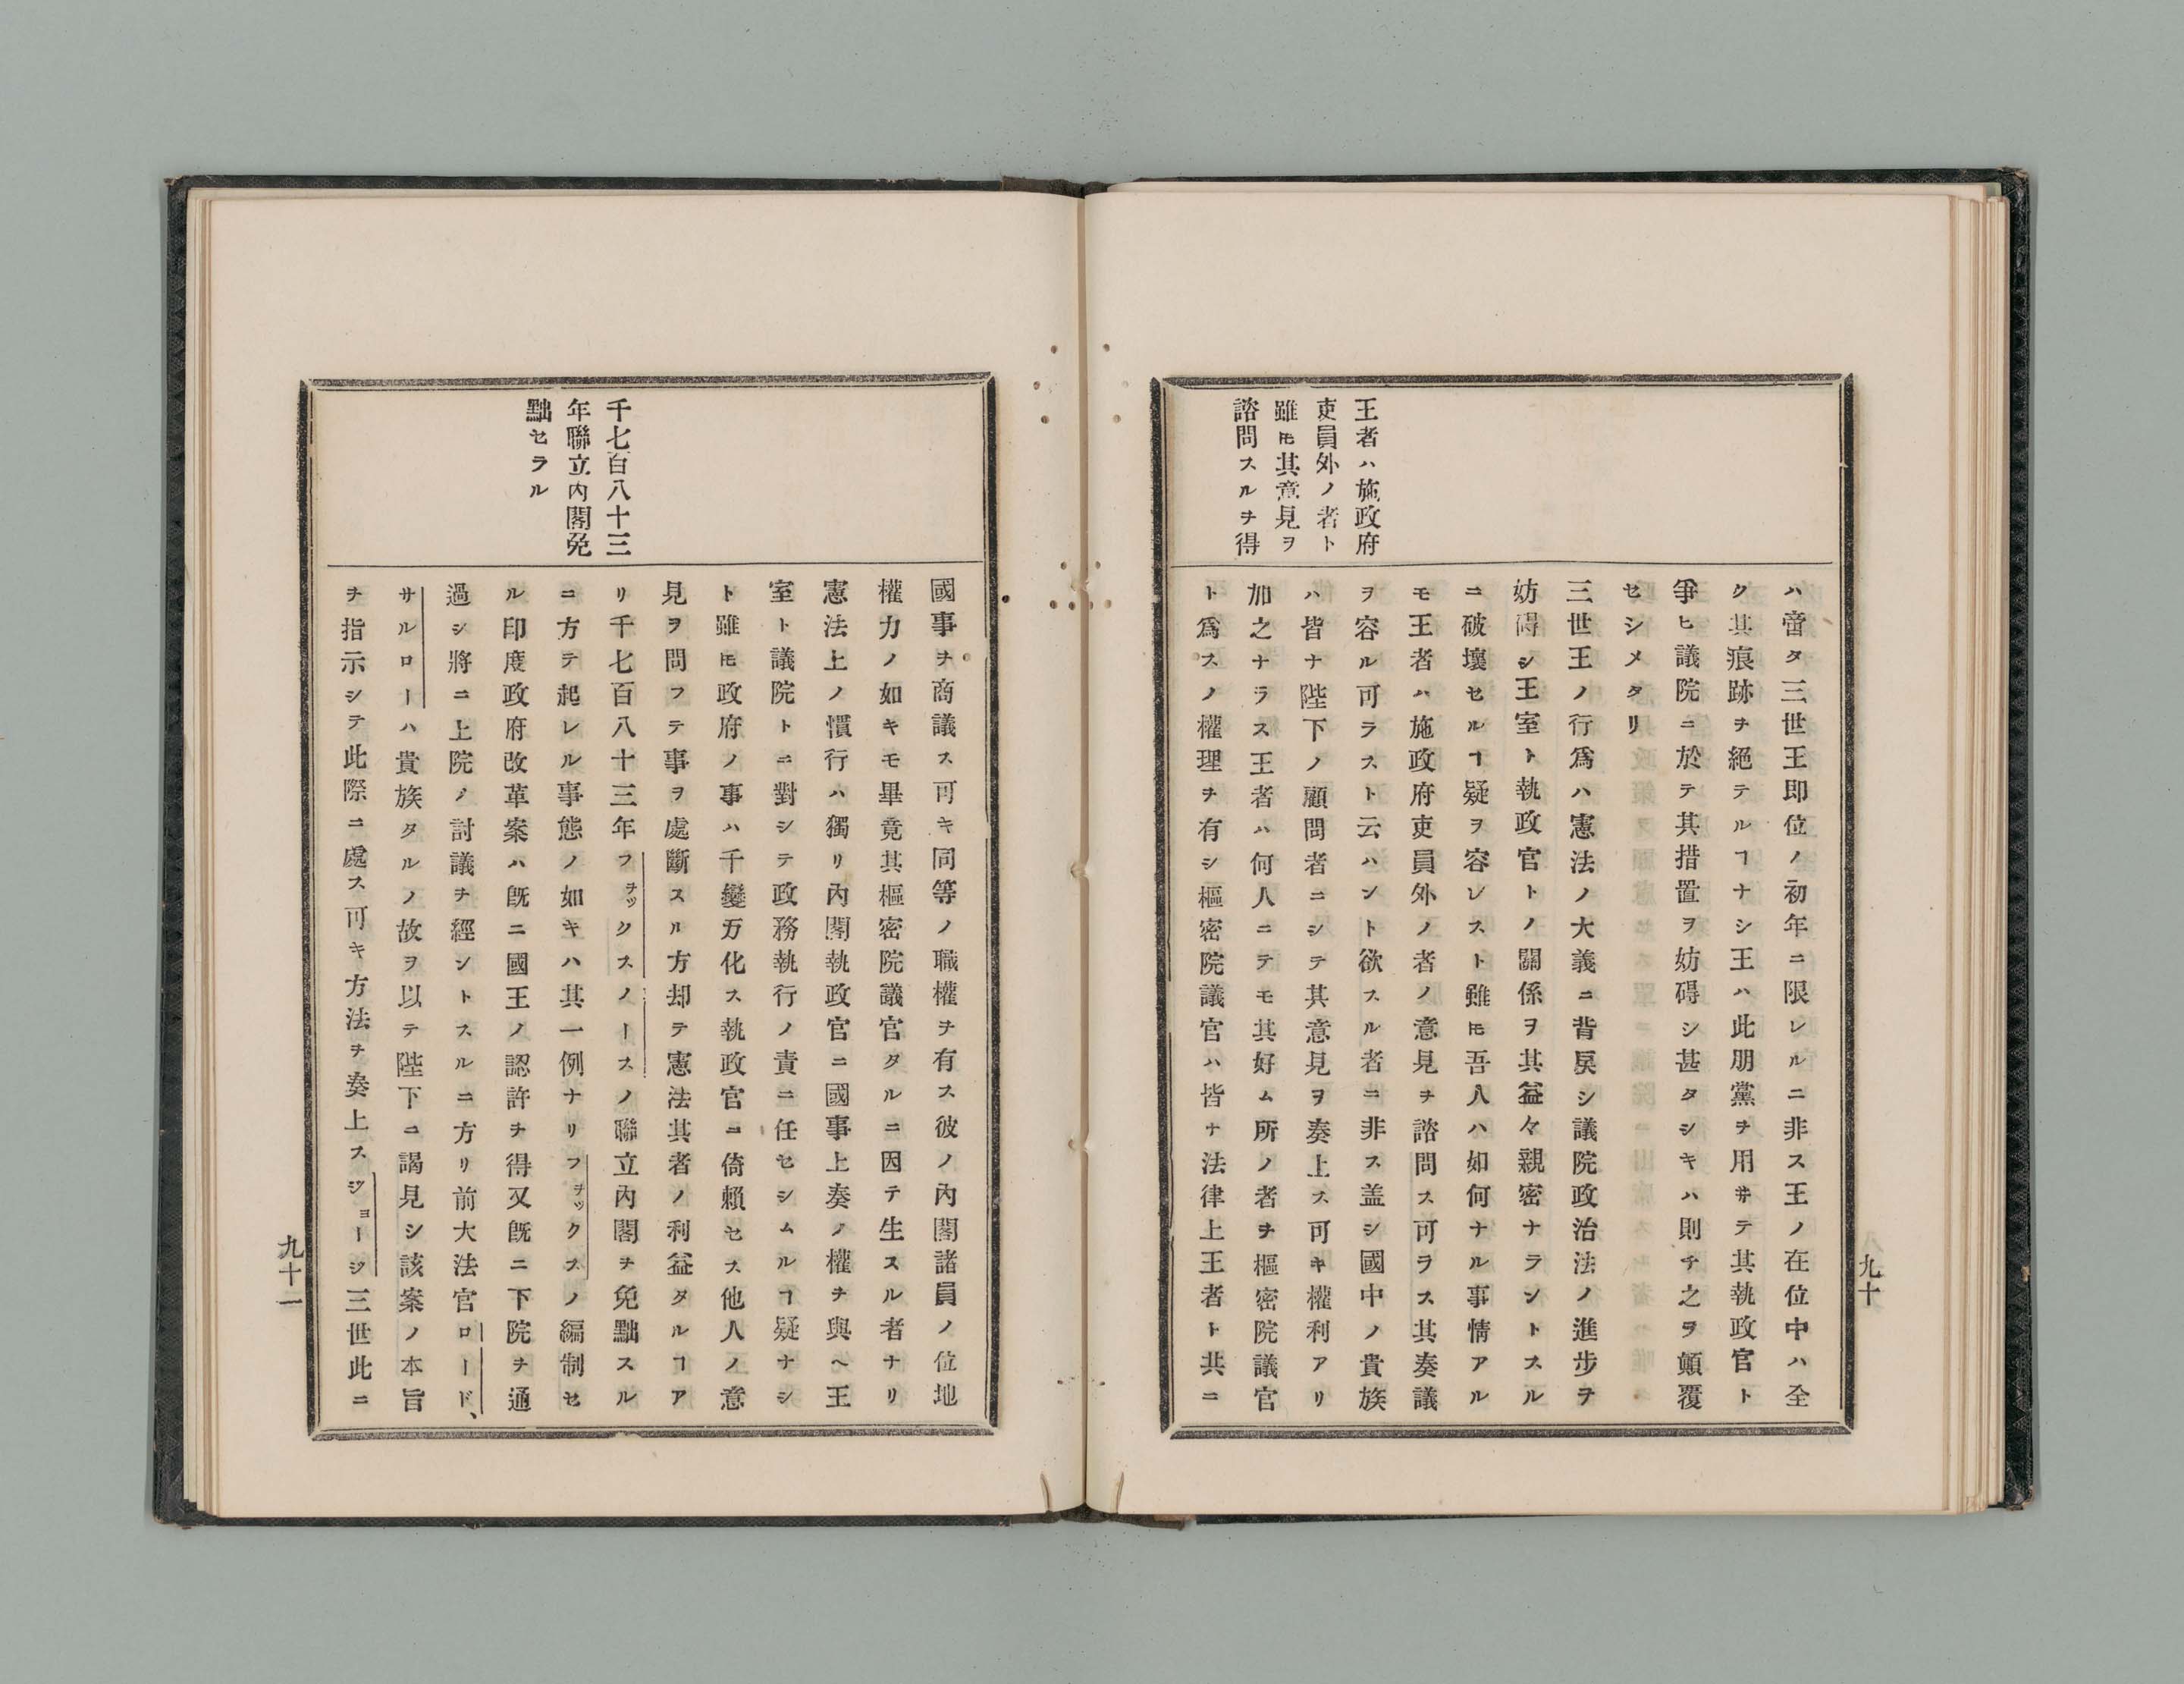 王者ハ施政府
吏員外ノ者ト
雖𪜈其意見ヲ
諮問スルヲ得
ハ啻タ三世王即位ノ初年ニ限レルニ非ス王ノ在位中ハ全
ク其痕跡ヲ絕テルヿナシ王ハ此朋黨ヲ用井テ其執政官ト
爭ヒ議院ニ於テ其措置ヲ妨碍シ甚タシキハ則チ之ヲ顚覆
セシメタリ
三世王ノ行爲ハ憲法ノ大義ニ背戾シ議院政治法ノ進步ヲ
妨碍シ王室ト執政官トノ關係ヲ其益々親密ナラントスル
ニ破壞セルヿ疑ヲ容レスト雖𪜈吾人ハ如何ナル事情アル
モ王者ハ施政府吏員外ノ者ノ意見ヲ諮問ス可ラス其奏議
ヲ容ル可ラスト云ハント欲スル者ニ非ス盖シ國中ノ貴族
ハ皆ナ陛下ノ顧問者ニシテ其意見ヲ奏上ス可キ權利アリ
加之ナラス王者ハ何人ニテモ其好ム所ノ者ヲ樞密院議官
ト爲スノ權理ヲ有シ樞密院議官ハ皆ナ法律上王者ト共ニ
九十
千七百八十三
年聯立內閣免
黜セラル
國事ヲ商議ス可キ同等ノ職權ヲ有ス彼ノ內閣諸員ノ位地
權力ノ如キモ畢竟其樞密院議官タルニ因テ生スル者ナリ
憲法上ノ慣行ハ獨リ內閣執政官ニ國事上奏ノ權ヲ與ヘ王
室ト議院トニ對シテ政務執行ノ責ニ任セシムルヿ疑ナシ
ト雖𪜈政府ノ事ハ千變万化ス執政官ニ倚賴セス他人ノ意
見ヲ問フテ事ヲ處斷スル方却テ憲法其者ノ利益タルヿア
リ千七百八十三年フヲックスノースノ聯立內閣ヲ免黜スル
ニ方テ起レル事態ノ如キハ其一例ナリフヲックスノ編制セ
ル印度政府改革案ハ旣ニ國王ノ認許ヲ得又旣ニ下院ヲ通
過シ將ニ上院ノ討議ヲ經ントスルニ方リ前大法官ロード、
サルローハ貴族タルノ故ヲ以テ陛下ニ謁見シ該案ノ本旨
ヲ指示シテ此際ニ處ス可キ方法ヲ奏上スジョージ三世此ニ
九十一